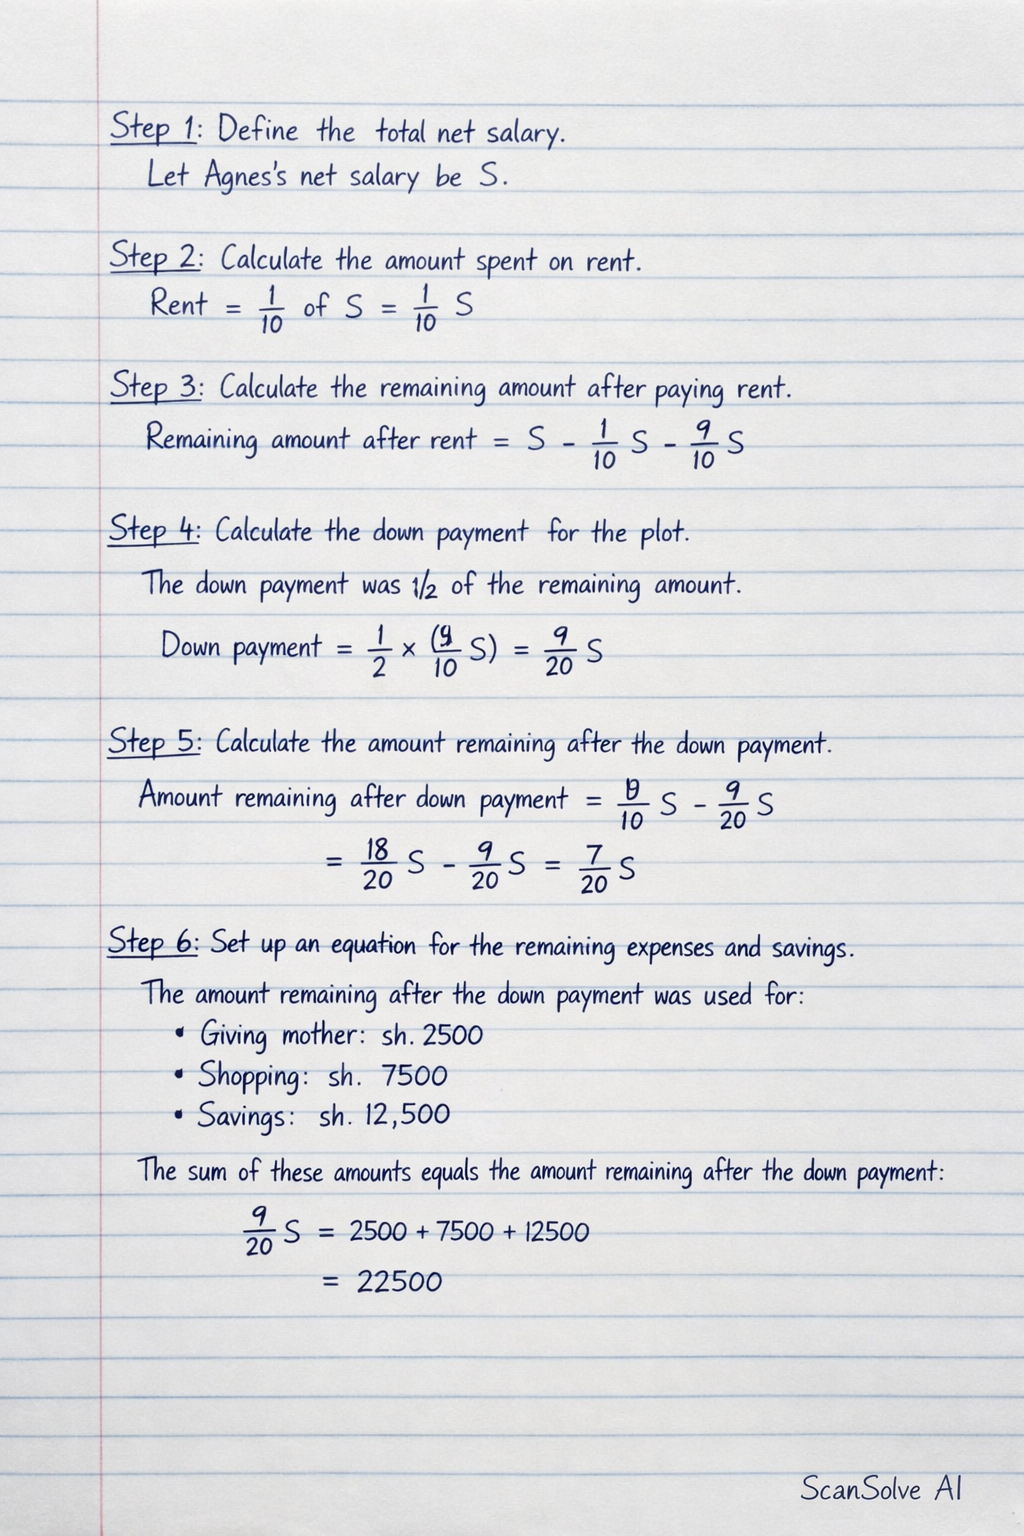 Step 1: Define the total net salary.
Let Agnes's net salary be S.
Step 2: Calculate the amount spent on rent.
Rent = 1/10 of S = 1/10 S
Step 3: Calculate the remaining amount after paying rent.
Remaining amount after rent = S - 1/10 S - 9/10 S
Step 4: Calculate the down payment for the plot.
The down payment was 1/2 of the remaining amount.
Down payment = 1/2 × (9/10 S) = 9/20 S
Step 5: Calculate the amount remaining after the down payment.
Amount remaining after down payment = /10 S - 9/20 S
= 18/20 S - 9/20 S = 7/20 S
Step 6: Set up an equation for the remaining expenses and savings.
The amount remaining after the down payment was used for:
• Giving mother: sh. 2500
• Shopping: sh. 7500
• Savings: sh. 12,500
The sum of these amounts equals the amount remaining after the down payment:
9/20 S = 2500 + 7500 + 12500
= 22500
ScanSolve AI